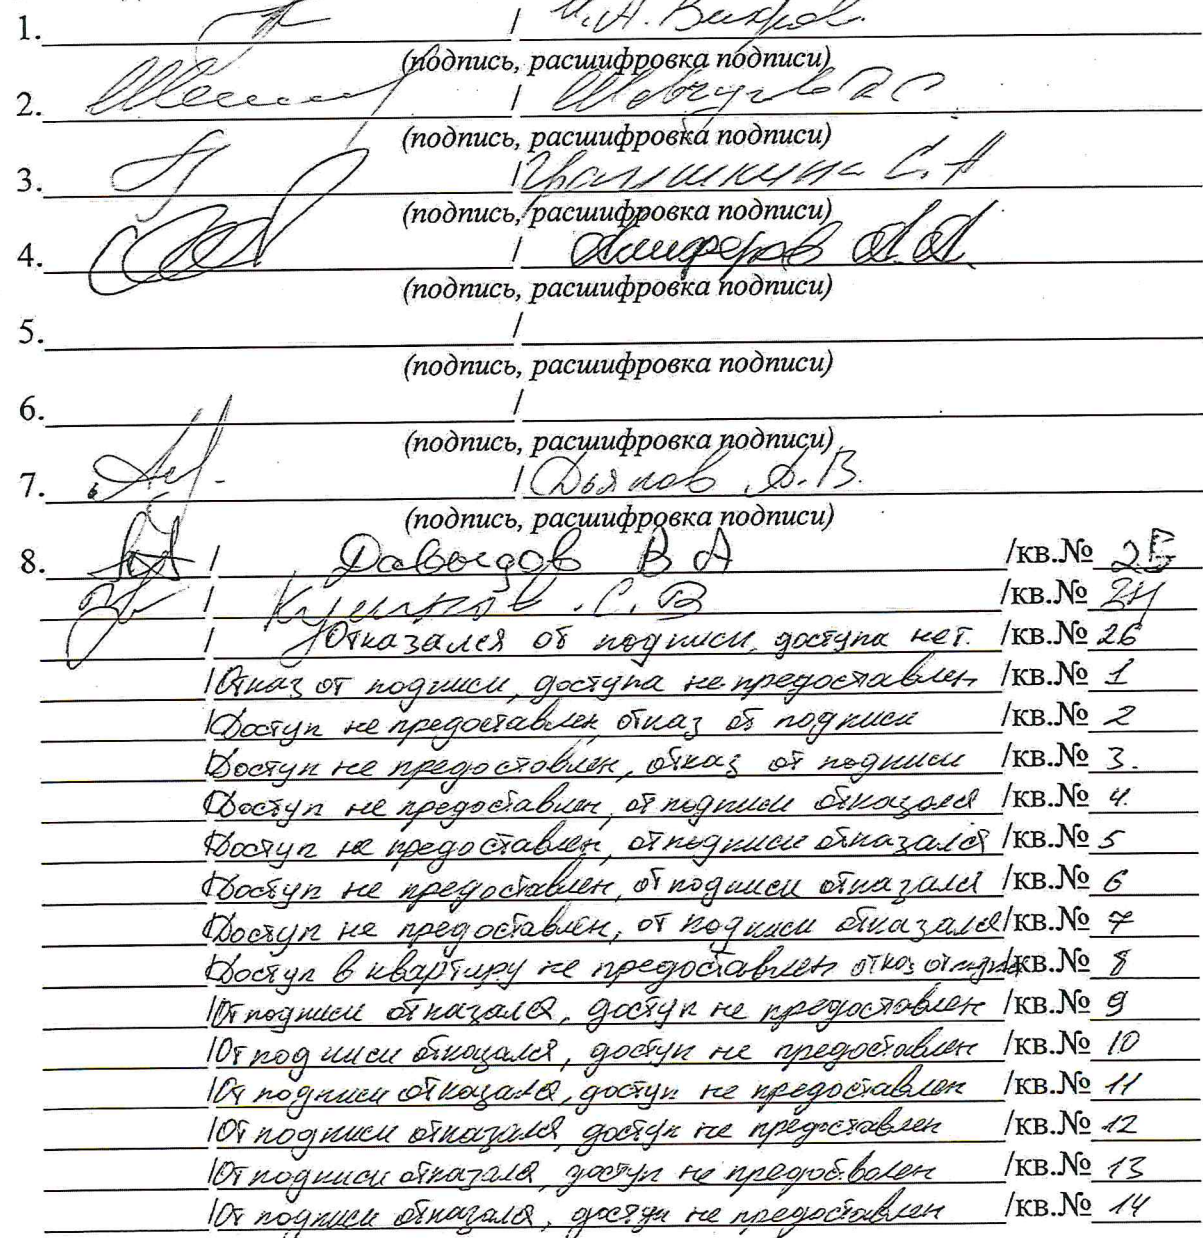 1. / И.А. Вихров.
(подпись, расшифровка подписи)
2. /
(подпись, расшифровка подписи)
3. / С.А
(подпись, расшифровка подписи)
4. / Алиферов А.А.
(подпись, расшифровка подписи)
5. /
(подпись, расшифровка подписи)
6. /
(подпись, расшифровка подписи)
7. / Дьяков А.В.
(подпись, расшифровка подписи)
8. / Давыдов В А /кв.№ 25
/ С.В /кв.№ 24
/ Отказался от подписи, доступа нет. /кв.№ 26
/ Отказ от подписи, доступа не предоставлен /кв.№ 1
/ Доступ не предоставлен, отказ от подписи /кв.№ 2
/ Доступ не предоставлен, отказ от подписи /кв.№ 3.
/ Доступ не предоставлен, от подписи отказался /кв.№ 4.
/ Доступ не предоставлен, от подписи отказался /кв.№ 5
/ Доступ не предоставлен, от подписи отказался /кв.№ 6
/ Доступ не предоставлен, от подписи отказался /кв.№ 7
/ Доступ в квартиру не предоставлен отказ от /кв.№ 8
/ От подписи отказался, доступ не предоставлен /кв.№ 9
/ От подписи отказался, доступ не предоставлен /кв.№ 10
/ От подписи отказался, доступ не предоставлен /кв.№ 11
/ От подписи отказался, доступ не предоставлен /кв.№ 12
/ От подписи отказался, доступ не /кв.№ 13
/ От подписи отказался, доступ не предоставлен /кв.№ 14